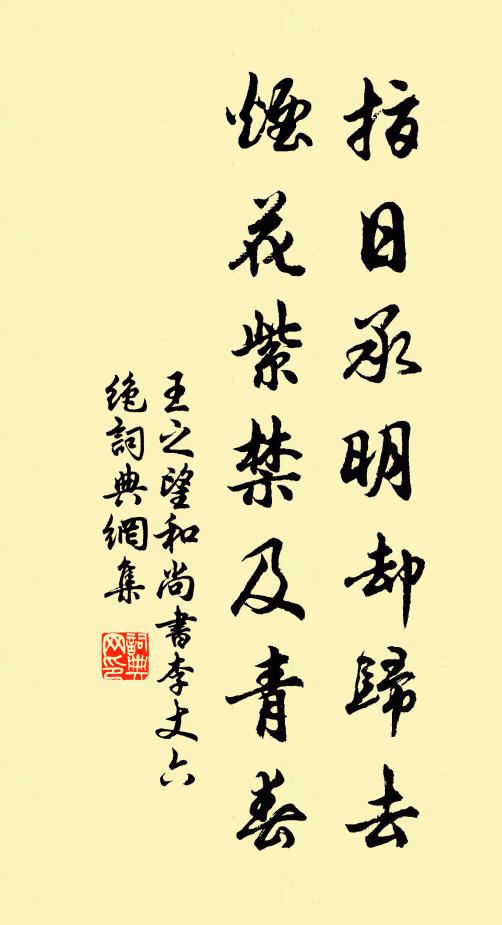 指日承明却歸去
煙花紫禁及青春
王之望和尚書李丈六
絶詞典網集
詞典
网印